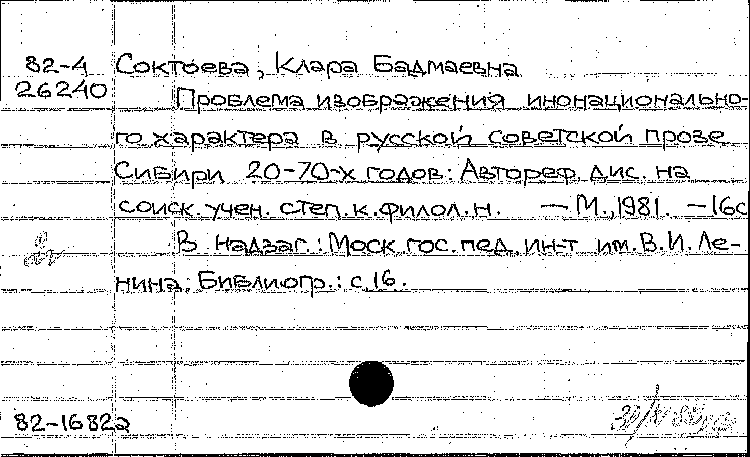 82-4 Соктоева, Клара Бадмаевна
26240 Проблема изображения инонационально-
го характера в русской советской прозе
Сибири 20-70-х годов: Автореф. дис. на
соиск. учен. степ. к. филол. н. — М., 1981. — 16с
В надзаг.: Моск. гос. пед. ин-т им. В. И. Ле-
нина. Библиогр.: с. 16.
82-1682а